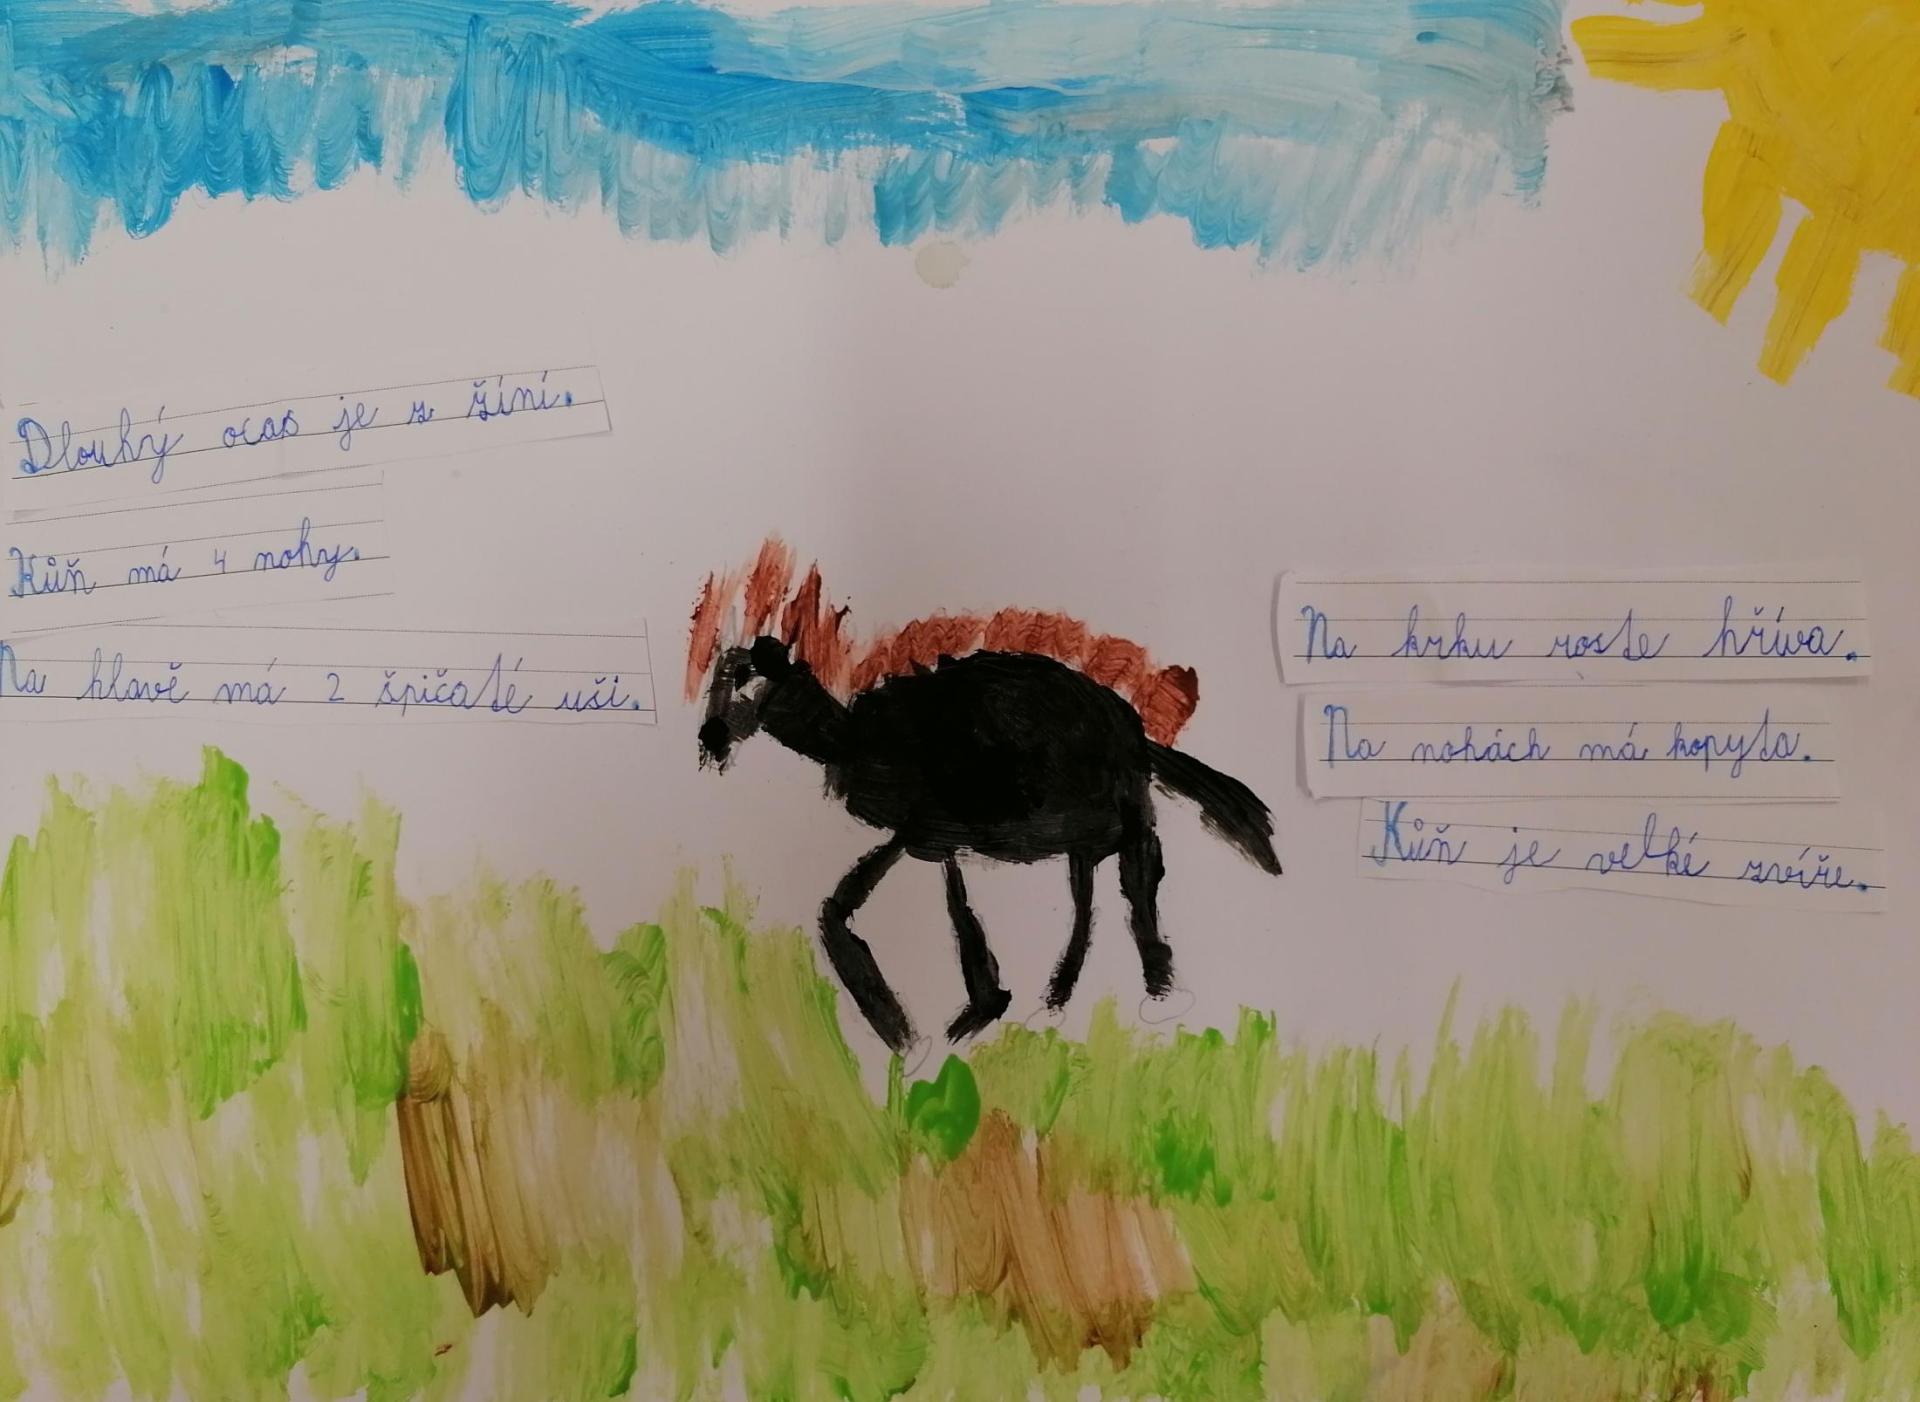 Dlouhý ocas je z žíní.
Kůň má 4 nohy.
Na hlavě má 2 špičaté uši.
Na krku roste hříva.
Na nohách má kopyta.
Kůň je velké zvíře.